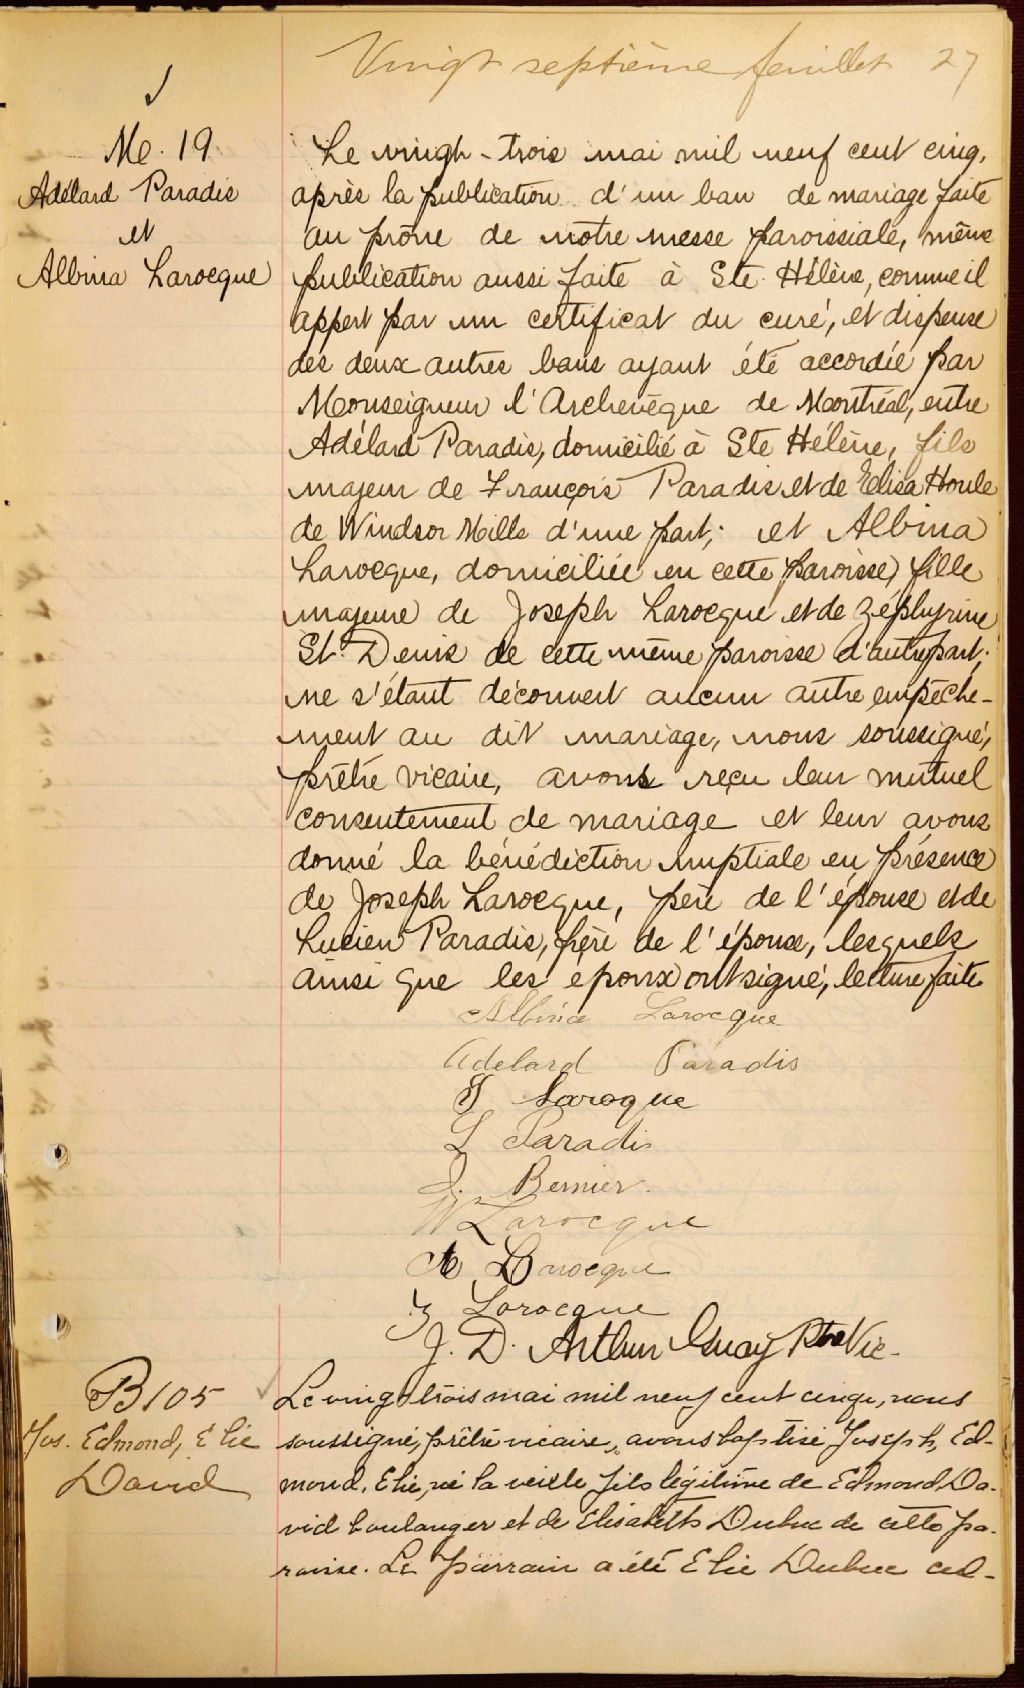 Vingt septième feuillet 27
M. 19.
Adélard Paradis
et
Albina Larocque
Le vingt-trois mai mil neuf cent cinq,
après la publication d'un ban de mariage faite
au prône de notre messe paroissiale, même
publication aussi faite à Ste Hélène, comme il
appert par un certificat du curé, et dispense
des deux autres bans ayant été accordée par
Monseigneur l'Archevêque de Montréal, entre
Adélard Paradis, domicilié à Ste Hélène, fils
majeur de François Paradis et de Elisa Houle
de Windsor Mills d'une part; et Albina
Larocque, domiciliée en cette paroisse, fille
majeure de Joseph Larocque et de Zéphyrine
St. Denis de cette même paroisse d'autre part;
ne s'étant découvert aucun autre empêche-
ment au dit mariage, nous soussigné,
prêtre vicaire, avons reçu leur mutuel
consentement de mariage et leur avons
donné la bénédiction nuptiale en présence
de Joseph Larocque, père de l'épouse et de
Lucien Paradis, frère de l'époux, lesquels
ainsi que les époux ont signé, lecture faite
Albina Larocque
Adelard Paradis
J Larocque
L Paradis
J. Bernier.
W Larocque
A Larocque
Z Larocque
J. D. Arthur Guay Ptre Vic.
B 105
Jos. Edmond, Elie
David
Le vingt trois mai mil neuf cent cinq, nous
soussigné, prêtre vicaire, avons baptisé Joseph, Ed-
mond, Elie, né la veille fils légitime de Edmond Da-
vid boulanger et de Elisabeth Dubuc de cette pa-
roisse. Le parrain a été Elie Dubuc cul-